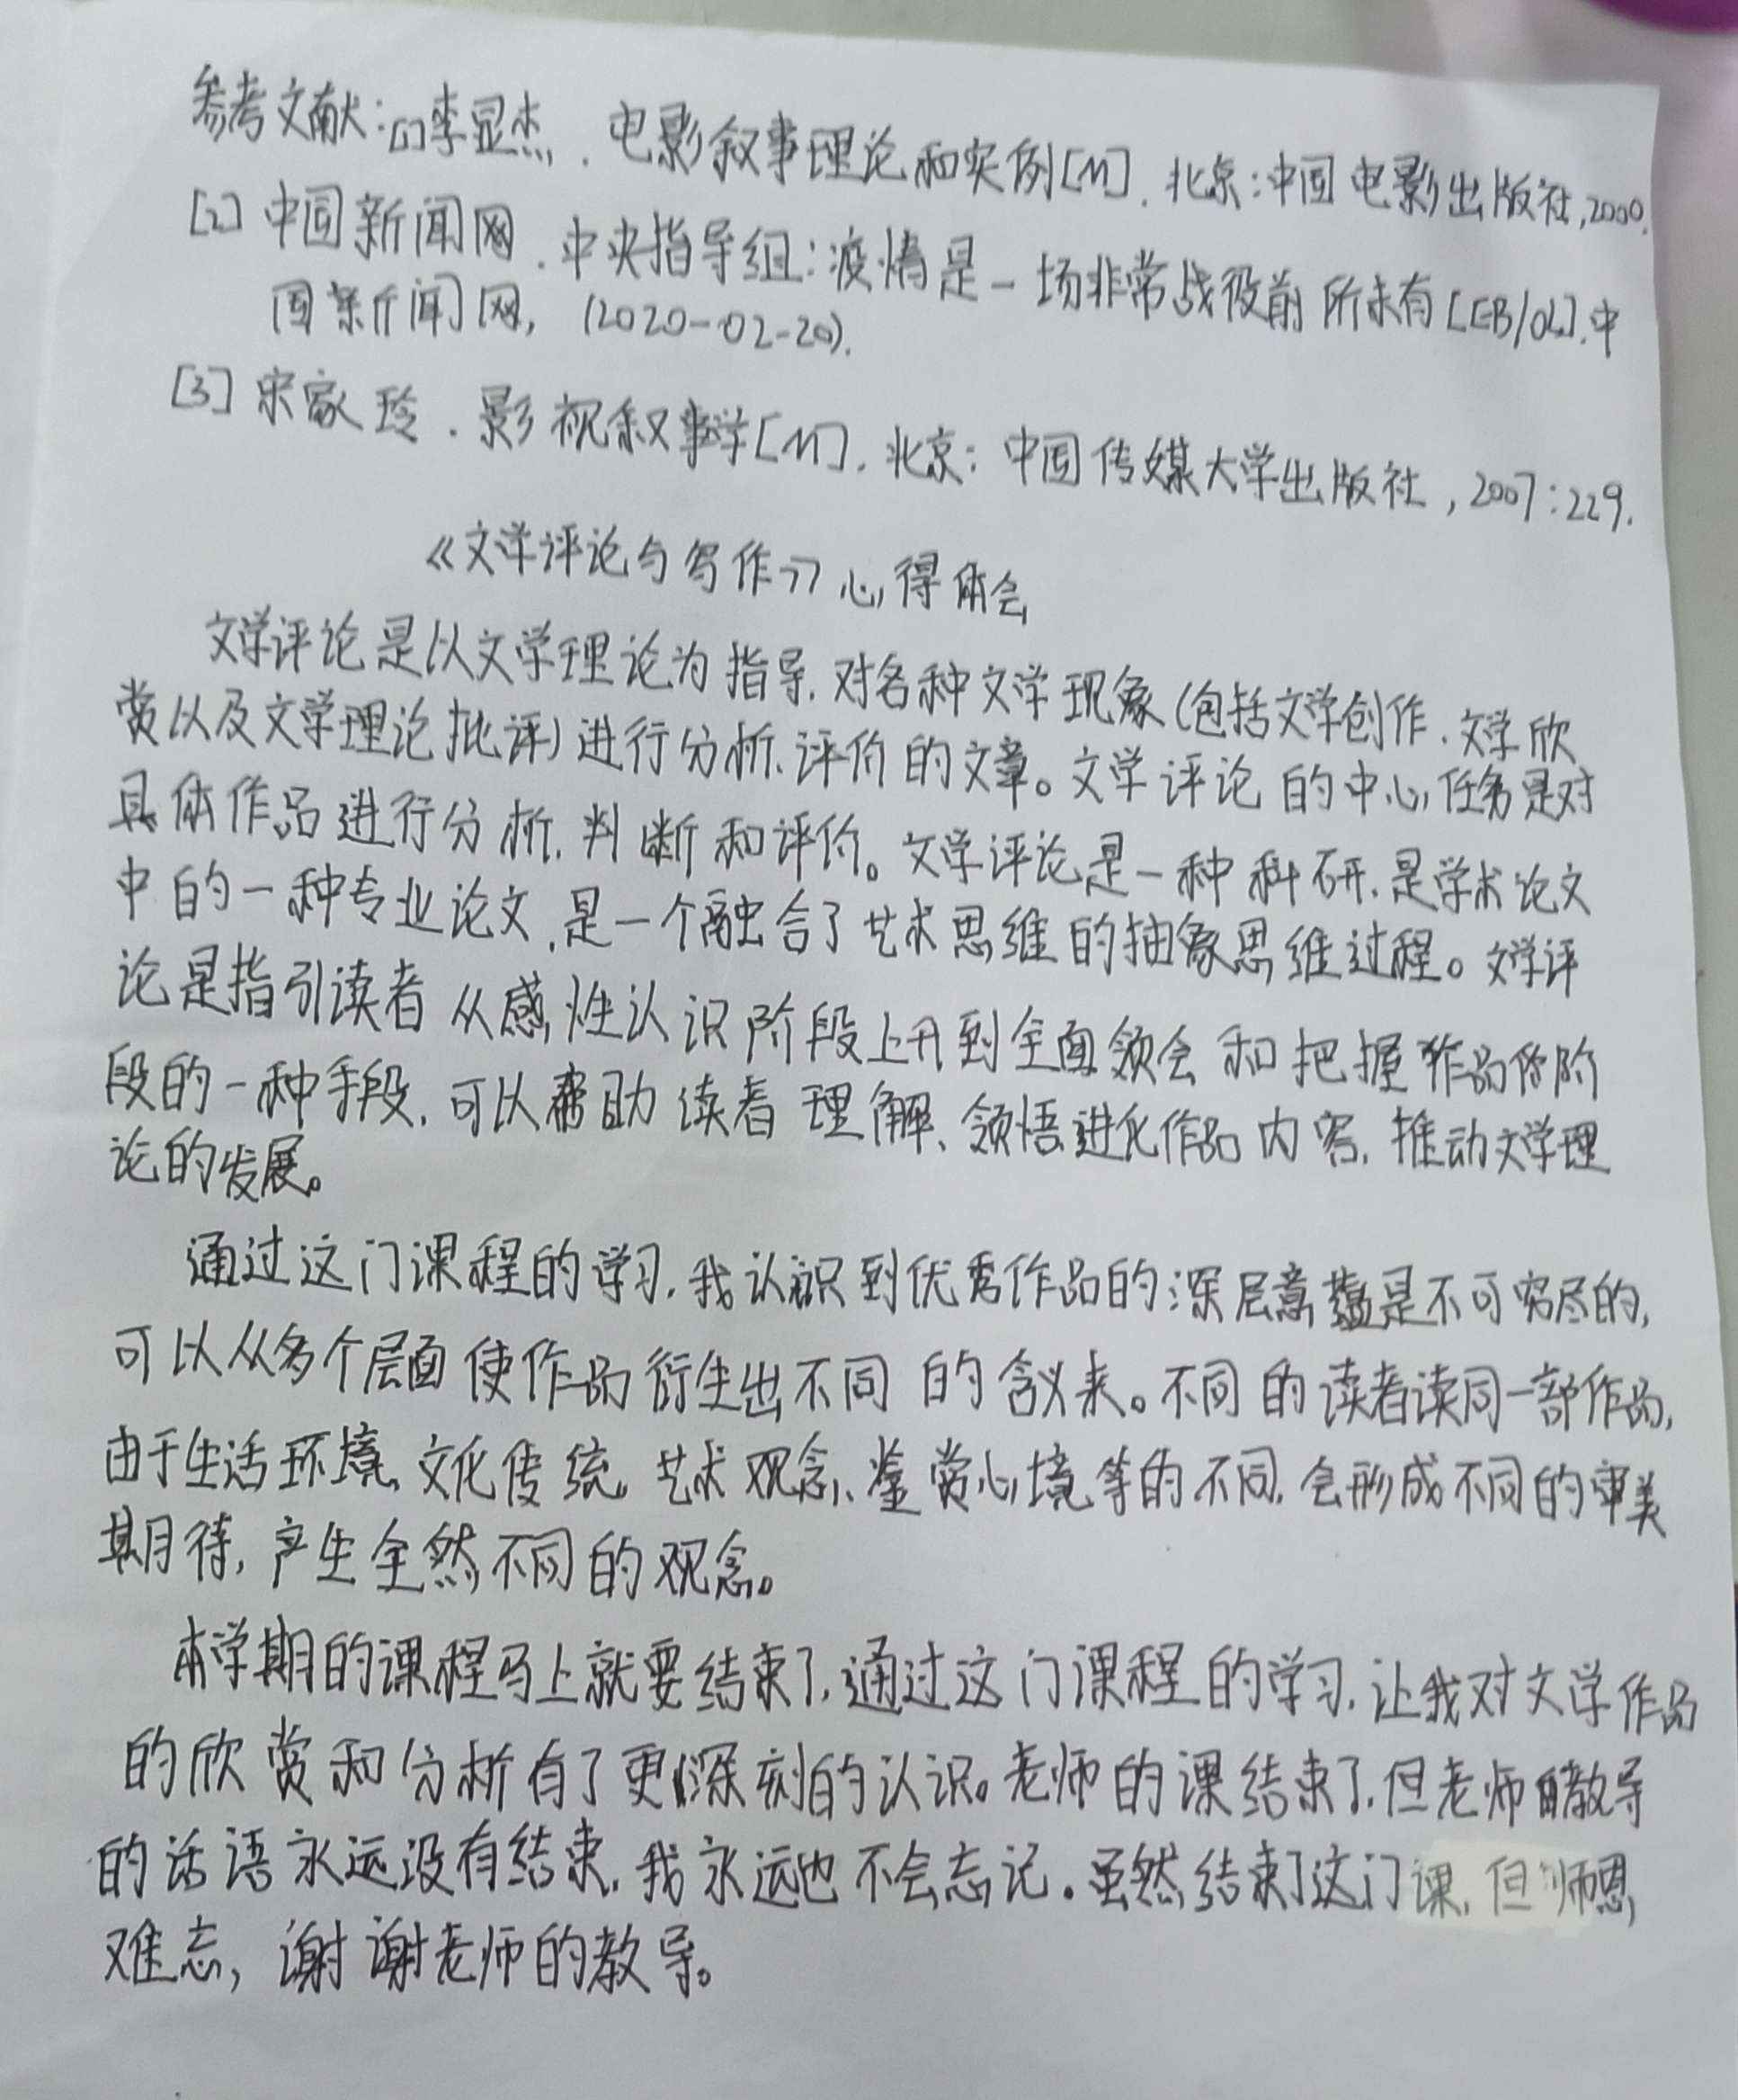 参考文献:[1]李显杰.电影叙事理论和实例[M].北京:中国电影出版社,2000.
[2]中国新闻网.中央指导组:疫情是一场非常战役前所未有[EB/OL].中
国新闻网,(2020-02-20).
[3]宋家玲.影视叙事学[M].北京:中国传媒大学出版社,2007:229.
《文学评论与写作》心得体会
文学评论是以文学理论为指导,对各种文学现象(包括文学创作、文学欣
赏以及文学理论批评)进行分析、评价的文章。文学评论的中心任务是对
具体作品进行分析、判断和评价。文学评论是一种科研,是学术论文
中的一种专业论文,是一个融合了艺术思维的抽象思维过程。文学评
论是指引读者从感性认识阶段上升到全面领会和把握作品的阶
段的一种手段,可以帮助读者理解、领悟进化作品内容,推动文学理
论的发展。
通过这门课程的学习,我认识到优秀作品的深层意蕴是不可穷尽的,
可以从多个层面使作品衍生出不同的含义来。不同的读者读同一部作品,
由于生活环境、文化传统、艺术观念、鉴赏心境等的不同,会形成不同的审美
期待,产生全然不同的观念。
本学期的课程马上就要结束了,通过这门课程的学习,让我对文学作品
的欣赏和分析有了更深刻的认识。老师的课结束了,但老师教导
的话语永远没有结束,我永远也不会忘记。虽然结束了这门课,但师恩
难忘,谢谢老师的教导。